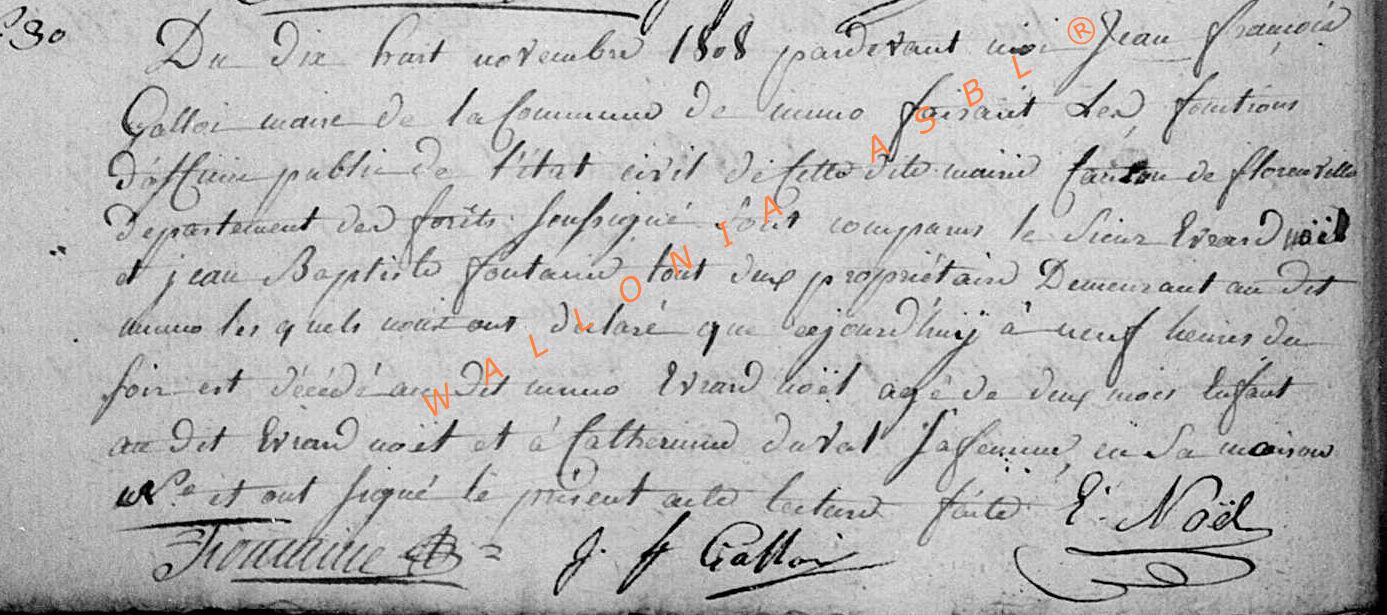 30
Du dix huit novembre 1808 pardevant moi Jean françois
Galloi maire de la Commune de muno faisant Les fonctions
d'officier public de l'état civil de Cette dite mairie Canton de florenville
departement des forêts soussigné Sont comparus le Sieur Evrard noël
et jean Baptiste fontaine tout deux propriétaire Demeurant au dit
muno les quels nous ont declaré que cejourd'huy à neuf heures du
soir est décédé au dit muno Evrard noël agé de deux mois Enfant
au dit Evrard noël et à Catherine duval Sa femme, en Sa maison
et ont signé le présent acte lecture faite E. Noël
Fontaine J. f Galloi
WALLONIA ASBL ®